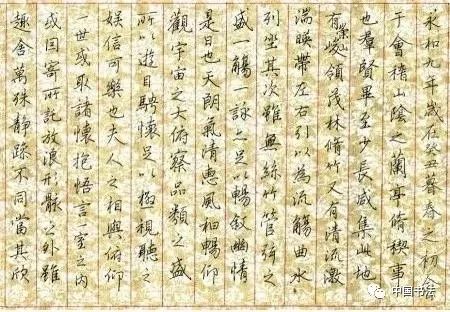 永和九年歲在癸丑暮春之初會
于會稽山陰之蘭亭脩稧事
也羣賢畢至少長咸集此地
有崇山峻領茂林脩竹又有清流激
湍暎帶左右引以為流觴曲水
列坐其次雖無絲竹管弦之
盛一觴一詠亦足以暢敘幽情
是日也天朗氣清惠風和暢仰
觀宇宙之大俯察品類之盛
所以遊目騁懷足以極視聽之
娛信可樂也夫人之相與俯仰
一世或取諸懷抱悟言一室之内
或因寄所託放浪形骸之外雖
趣舍萬殊靜躁不同當其欣
中国书法